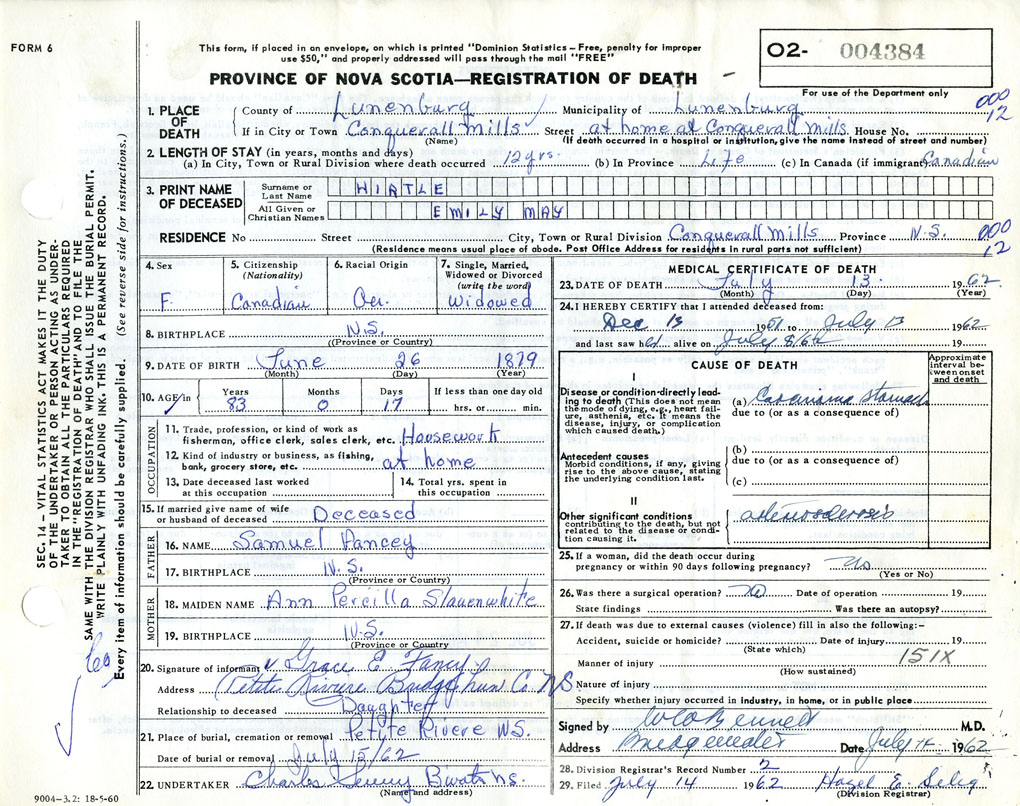 FORM 6
This form, if placed in an envelope, on which is printed "Dominion Statistics—Free, penalty for improper
use $50," and properly addressed will pass through the mail "FREE"
O2- 004384
For use of the Department only
PROVINCE OF NOVA SCOTIA—REGISTRATION OF DEATH
000
12
1. PLACE OF DEATH
County of Lunenburg Municipality of Lunenburg
If in City or Town Conquerall Mills Street at home at Conquerall Mills House No.
(Name) (If death occurred in a hospital or institution, give the name instead of street and number)
2. LENGTH OF STAY (in years, months and days)
(a) In City, Town or Rural Division where death occurred 12 yrs. (b) In Province Life (c) In Canada (if immigrant) Canadian
3. PRINT NAME OF DECEASED
Surname or Last Name HIRTLE
All Given or Christian Names EMILY MAY
RESIDENCE No. Street City, Town or Rural Division Conquerall Mills Province N.S.
000
12
(Residence means usual place of abode. Post Office Address for residents in rural parts not sufficient)
4. Sex F.
5. Citizenship (Nationality) Canadian
6. Racial Origin
7. Single, Married, Widowed or Divorced (write the word) Widowed
8. BIRTHPLACE N.S.
(Province or Country)
9. DATE OF BIRTH June 26 1879
(Month) (Day) (Year)
10. AGE in Years Months Days If less than one day old
83 0 17 hrs. or min.
OCCUPATION
11. Trade, profession or kind of work as
fisherman, office clerk, sales clerk, etc. Housework
12. Kind of industry or business, as fishing,
bank, grocery store, etc. at home
13. Date deceased last worked at this occupation
14. Total yrs. spent in this occupation
15. If married give name of wife
or husband of deceased Deceased
FATHER
16. NAME Samuel Pancey
17. BIRTHPLACE N.S.
(Province or Country)
MOTHER
18. MAIDEN NAME Ann Percilla Slauenwhite
19. BIRTHPLACE N.S.
(Province or Country)
20. Signature of informant Grace E. Fancy
Address Petite Riviere Bridge Lun Co. N.S.
Relationship to deceased Daughter
21. Place of burial, cremation or removal Petite Rivere N.S.
Date of burial or removal July 15/62
22. UNDERTAKER Charles B'water N.S.
(Name and address)
MEDICAL CERTIFICATE OF DEATH
23. DATE OF DEATH July 13. 1962
(Month) (Day) (Year)
24. I HEREBY CERTIFY that I attended deceased from:
Dec 13 1961 to July 13 1962
and last saw her alive on July 8/62 19
CAUSE OF DEATH
Approximate interval between onset and death
I
Disease or condition directly leading to death (This does not mean
the mode of dying, e.g., heart failure, asthenia, etc. It means the
disease, injury, or complication
which caused death.)
(a) Carcinoma Stomach
due to (or as a consequence of)
Antecedent causes
Morbid conditions, if any, giving
rise to the above cause, stating
the underlying condition last.
(b)
due to (or as a consequence of)
(c)
II
Other significant conditions
contributing to the death, but not
related to the disease or condition causing it.
arteriosclerosis
25. If a woman, did the death occur during
pregnancy or within 90 days following pregnancy? No
(Yes or No)
26. Was there a surgical operation? No Date of operation 19
State findings Was there an autopsy?
27. If death was due to external causes (violence) fill in also the following:—
Accident, suicide or homicide? Date of injury 19
(State which)
151X
Manner of injury
(How sustained)
Nature of injury
Specify whether injury occurred in industry, in home, or in public place
Signed by W O Bennett M.D.
Address Bridgewater Date July 14 1962
28. Division Registrar's Record Number 2
29. Filed July 14 1962 Hazel E. Selig
(Division Registrar)
SEC. 14 — VITAL STATISTICS ACT MAKES IT THE DUTY
OF THE UNDERTAKER OR PERSON ACTING AS UNDERTAKER TO OBTAIN ALL THE PARTICULARS REQUIRED
IN THE "REGISTRATION OF DEATH" AND TO FILE THE
SAME WITH THE DIVISION REGISTRAR WHO SHALL ISSUE THE BURIAL PERMIT.
WRITE PLAINLY WITH UNFADING INK. THIS IS A PERMANENT RECORD.
Every item of information should be carefully supplied. (See reverse side for instructions.)
9004-3.2: 18-5-60